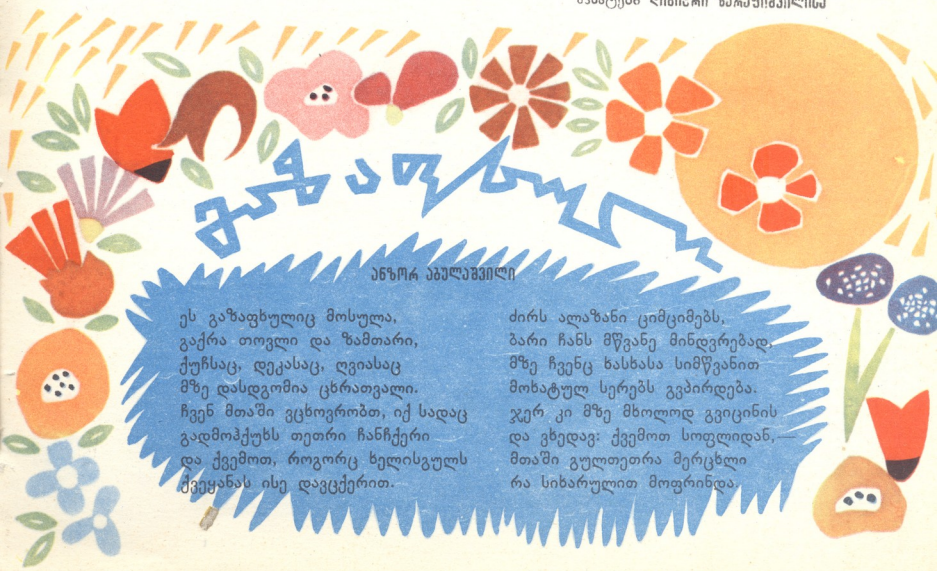 გაზაფხული
ანზორ აბულაშვილი
ეს გაზაფხულიც მოსულა,
გაქრა თოვლი და ზამთარი,
ქუჩსაც, დეკასაც, ღვიასაც
მზე დასდგომია ცხრათვალი.
ჩვენ მთაში ვცხოვრობთ, იქ სადაც
გადმოჰქუხს თეთრი ჩანჩქერი
და ქვემოთ, როგორც ხელისგულს
ქვეყანას ისე დავცქერით.
ძირს ალაზანი ციმციმებს,
ბარი ჩანს მწვანე მინდვრებად,
მზე ჩვენც ხასხასა სიმწვანით
მოხატულ სერებს გვპირდება.
ჯერ კი მზე მხოლოდ გვიცინის
და ვხედავ: ქვემოთ სოფლიდან,—
მთაში გულთეთრა მერცხლი
რა სიხარულით მოფრინდა.